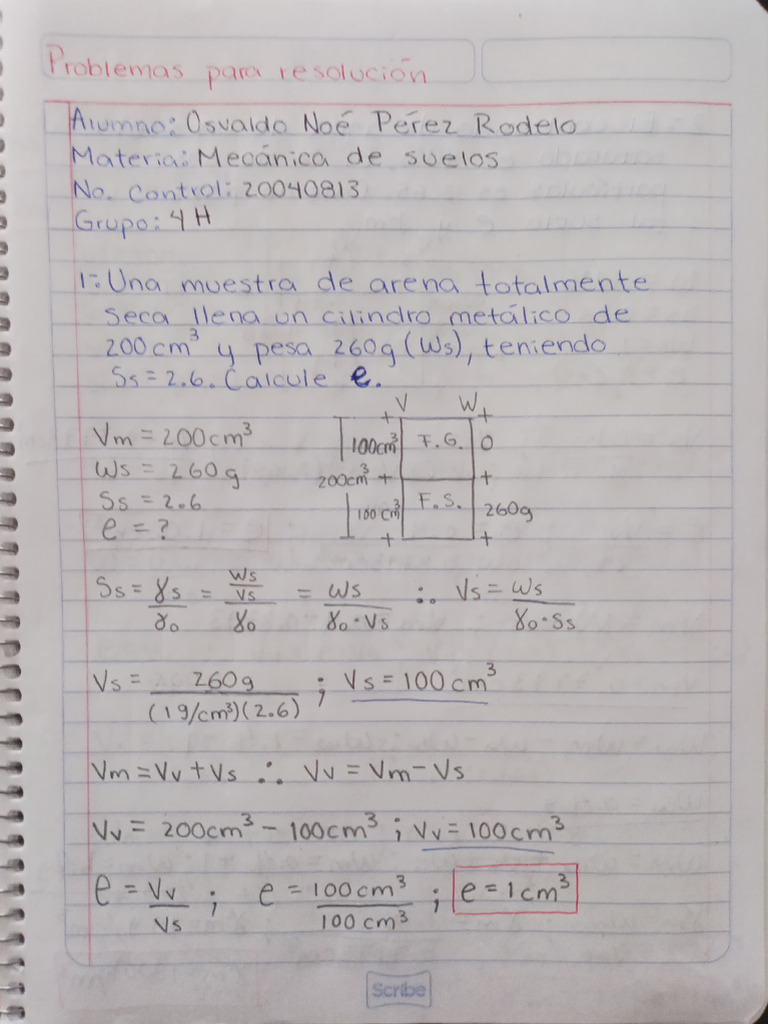 Problemas para resolución
Alumno: Osvaldo Noé Pérez Rodelo
Materia: Mecánica de suelos
No. Control: 20040813
Grupo: 4 H
1.- Una muestra de arena totalmente
seca llena un cilindro metálico de
200cm³ y pesa 260g (Ws), teniendo
Ss = 2.6. Calcule e.
V W
Vm = 200cm³ 100cm³ F.G. 0
Ws = 260g 200cm³
Ss = 2.6 100cm³ F.S. 260g
e = ?
Ss = γs/γo = (Ws/Vs)/γo = Ws/(γo·Vs) ∴ Vs = Ws/(γo·Ss)
Vs = 260g/((1g/cm³)(2.6)) ; Vs = 100cm³
Vm = Vv + Vs ∴ Vv = Vm - Vs
Vv = 200cm³ - 100cm³ ; Vv = 100cm³
e = Vv/Vs ; e = 100cm³/100cm³ ; e = 1cm³
Scribe